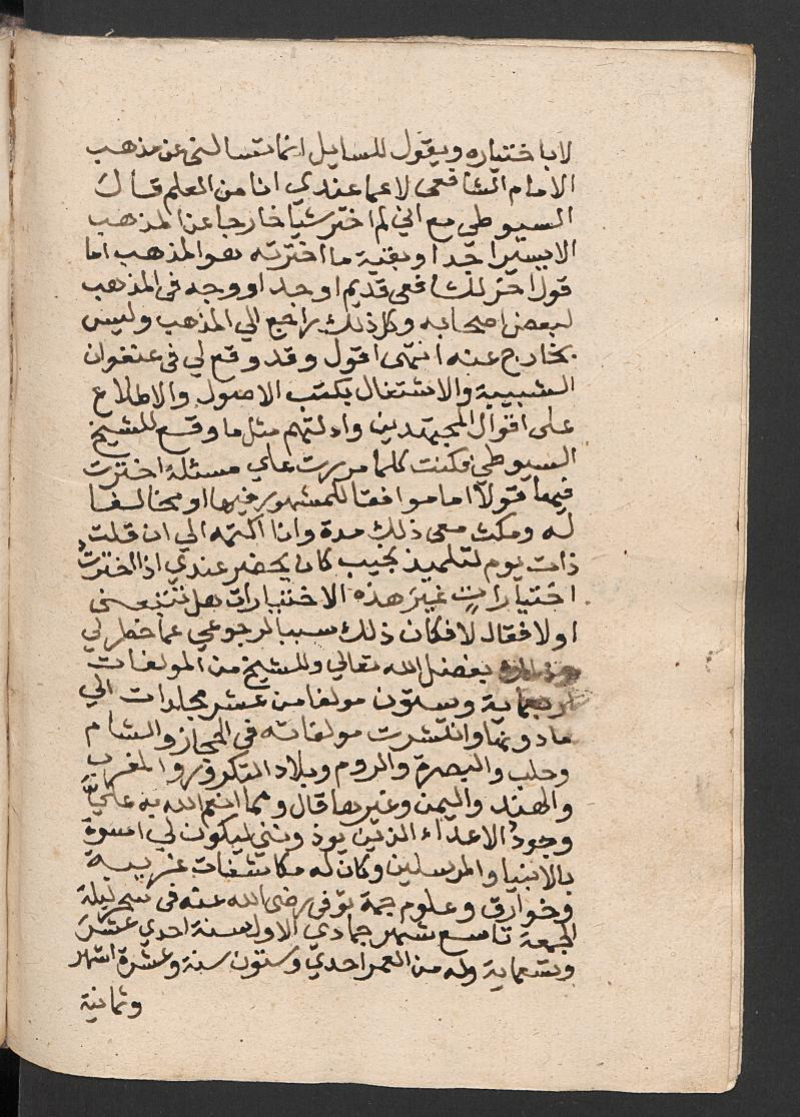 لا باختياره ويقول للسايل انما تسالني عن مذهب
الامام الشافعي لا عما عندي انا من المعلم قال
السيوطي مع اني لم اختر شيا خارجا عن المذهب
الا يسيرا جدا وبقية ما اخترته هو المذهب اما
قول اخر للشافعي قديم او جد او وجه في المذهب
لبعض اصحابه وكل ذلك راجع الي المذهب وليس
بخارج عنه انتهى اقول وقد وقع لي في عنفوان
الشبيبة والاشتغال بكتب الاصول والاطلاع
على اقوال المجتهدين وادلتهم مثل ما وقع للشيخ
السيوطي فكنت كلما مررت علي مسئلة اخترت
فيها قولا اما موافقا للمشهور فيها او مخالفا
له ومكث معي ذلك مدة وانا اكتمه الي ان قلت
ذات يوم لتلميذ نجيب كان يحضر عندي اذا اخترتُ
اختياراتٍ غير هذه الاختيارات هل تتبعني
اولا فقال لا فكان ذلك سببا لرجوعي عما خطر لي
بفضل الله تعالي وللشيخ من المولفات
اربعماية وستون مولفا من عشر مجلدات الي
ما دونها وانتشرت مولفاته في الحجاز والشام
وحلب والبصرة والروم وبلاد التكرور والمغرب
والهند واليمن وغيرها قال ومما انعم الله به عليَّ
وجود الاعداء الذين يوذونني ليكون لي اسوة
بالانبيا والمرسلين وكان له مكاشفات غريبة
وخوارق وعلوم جمة توفي رضي الله عنه في سحر ليلة
الجمعة تاسع شهر جمادي الاول سنة احدي عشر
وتسعماية وله من العمر احدي وستون سنة وعشرة اشهر
وثمانية